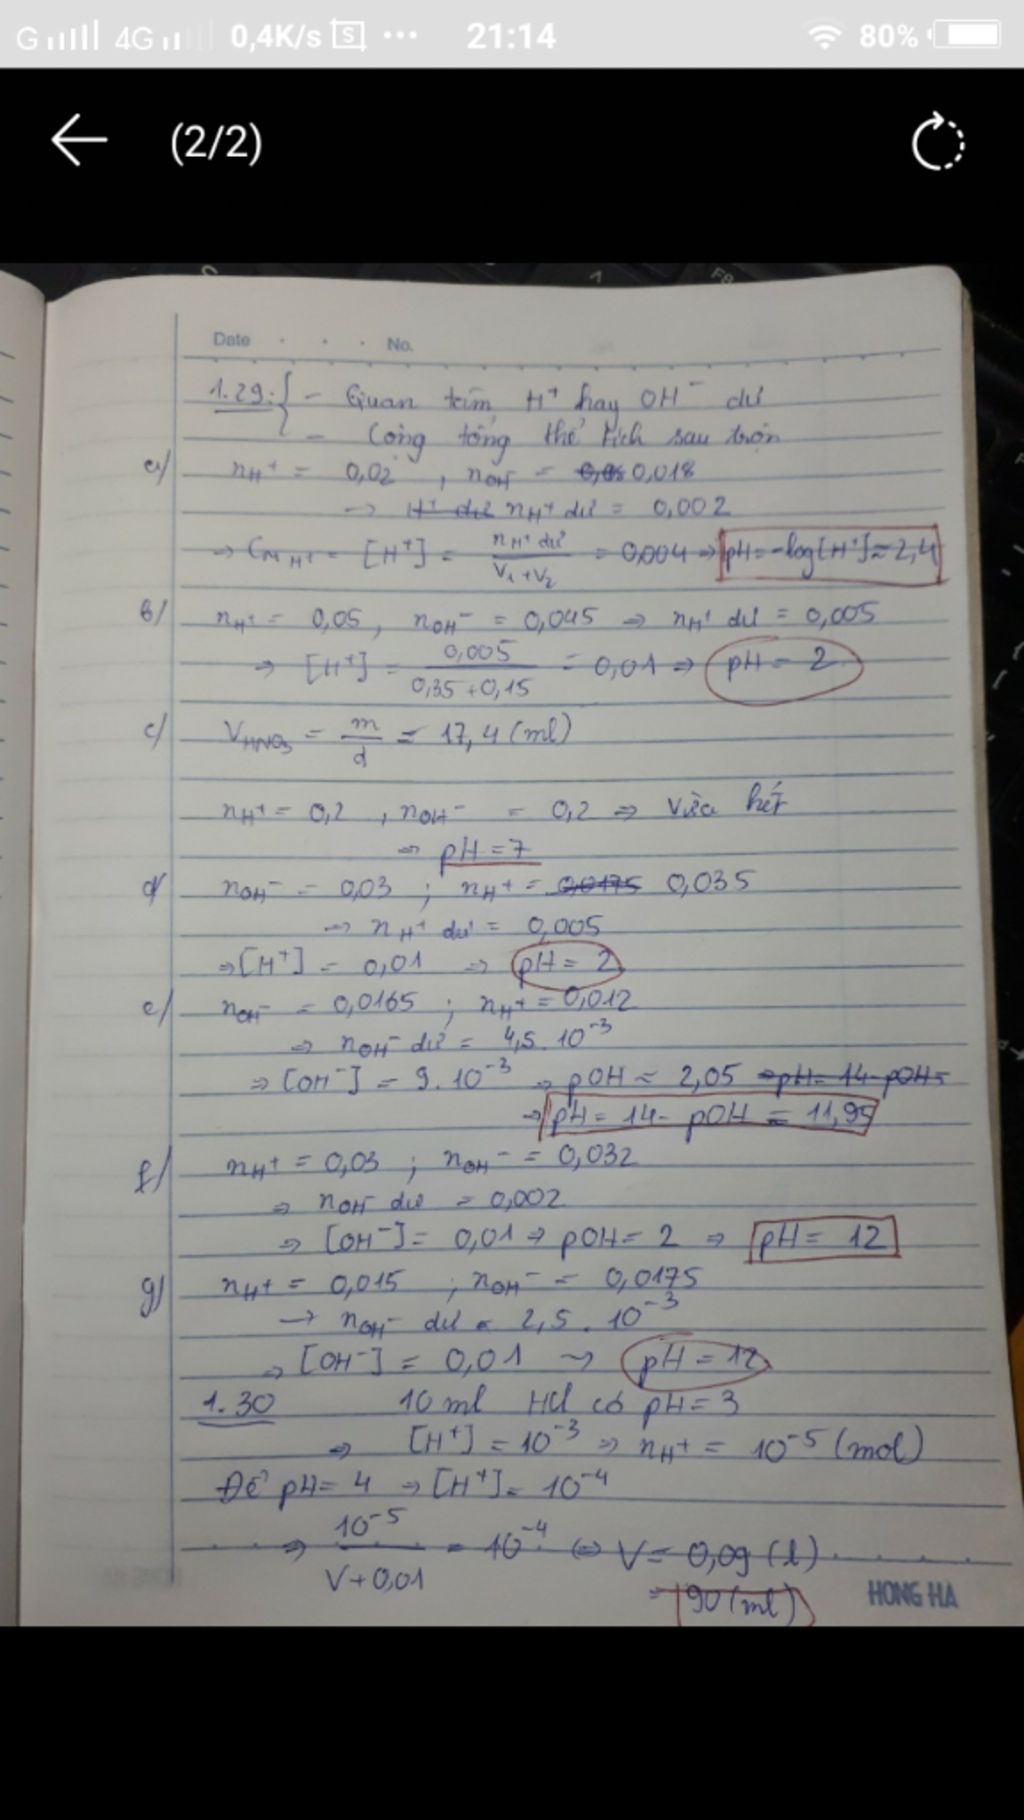 G 4G 0,4K/s S ••• 21:14 80%
(2/2)
Date . . . No.
1.29: { - Quan tâm H⁺ hay OH⁻ dư
- Cộng tổng thể tích sau trộn
a/ nH⁺ = 0,02 , nOH⁻ = 0,018
→ H⁺ dư nH⁺ dư = 0,002
→ CM H⁺ = [H⁺] = nH⁺ dư / V₁+V₂ = 0,004 → pH = -log[H⁺] ≈ 2,4
b/ nH⁺ = 0,05 , nOH⁻ = 0,045 → nH⁺ dư = 0,005
→ [H⁺] = 0,005 / 0,35+0,15 = 0,01 → pH = 2
c/ VHNO₃ = m / d = 17,4 (ml)
nH⁺ = 0,2 , nOH⁻ = 0,2 → Vừa hết
→ pH = 7
d/ nOH⁻ = 0,03 ; nH⁺ = 0,0175 0,035
→ nH⁺ dư = 0,005
→ [H⁺] = 0,01 → pH = 2
e/ nOH⁻ = 0,0165 ; nH⁺ = 0,012
→ nOH⁻ dư = 4,5.10⁻³
→ [OH⁻] = 9.10⁻³ → pOH ≈ 2,05 → pH = 14-pOH=
→ pH = 14 - pOH = 11,95
f/ nH⁺ = 0,03 ; nOH⁻ = 0,032
→ nOH⁻ dư = 0,002
→ [OH⁻] = 0,01 → pOH = 2 → pH = 12
g/ nH⁺ = 0,015 ; nOH⁻ = 0,0175
→ nOH⁻ dư = 2,5.10⁻³
→ [OH⁻] = 0,01 → pH = 12
1.30 10 ml HCl có pH = 3
→ [H⁺] = 10⁻³ → nH⁺ = 10⁻⁵ (mol)
Để pH = 4 → [H⁺] = 10⁻⁴
→ 10⁻⁵ / V+0,01 = 10⁻⁴ ⇔ V = 0,09 (l)
= 90 (ml)
HONG HA